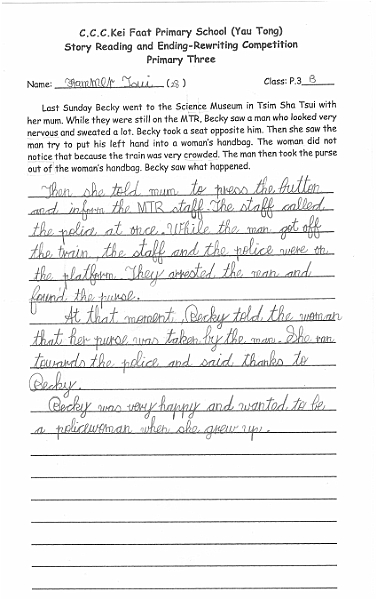 C.C.C.Kei Faat Primary School (Yau Tong)
Story Reading and Ending-Rewriting Competition
Primary Three
Name: Hammer Tsui (28) Class: P.3 B
Last Sunday Becky went to the Science Museum in Tsim Sha Tsui with
her mum. While they were still on the MTR, Becky saw a man who looked very
nervous and sweated a lot. Becky took a seat opposite him. Then she saw the
man try to put his left hand into a woman's handbag. The woman did not
notice that because the train was very crowded. The man then took the purse
out of the woman's handbag. Becky saw what happened.
Then she told mum to press the button
and inform the MTR staff. The staff called
the police at once. While the man got off
the train, the staff and the police were on
the platform. They arrested the man and
found the purse.
At that moment, Becky told the woman
that her purse was taken by the man. She ran
towards the police and said thanks to
Becky.
Becky was very happy and wanted to be
a policewoman when she grew up.